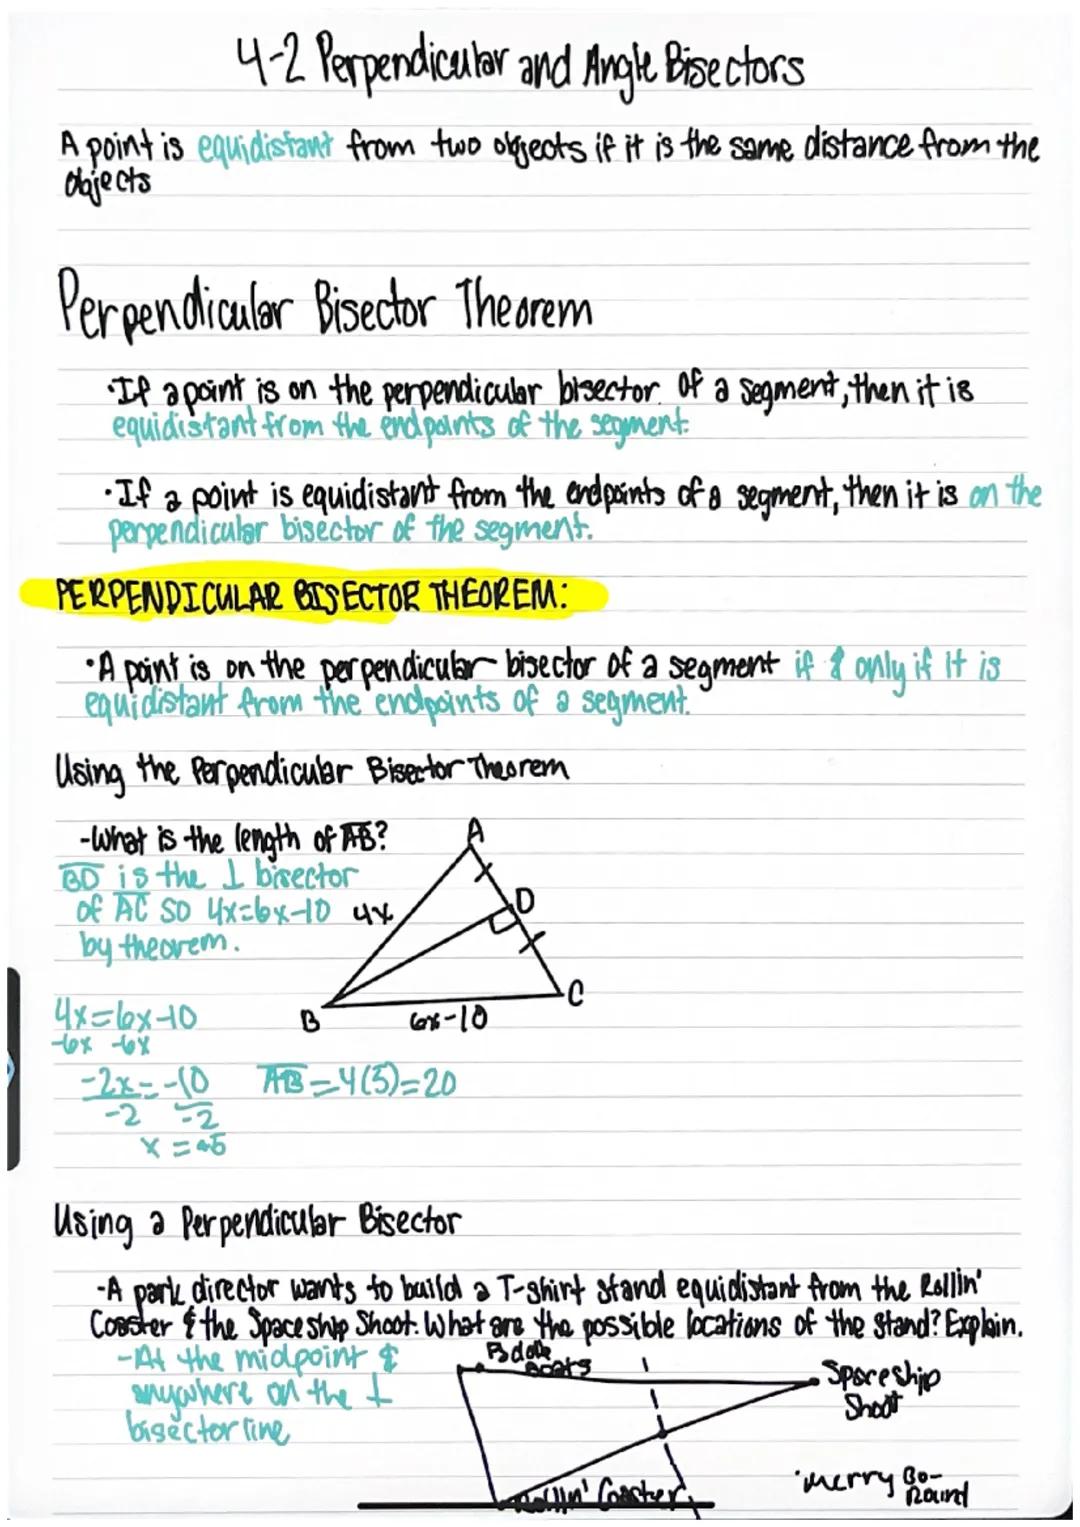 4-2 Perpendicular and Angle Bisectors
A point is equidistant from two objects if it is the same distance from the
objects
Perpendicular Bisector Theorem
·If a point is on the perpendicular bisector. of a segment, then it is
equidistant from the endpoints of the segment.
·If a point is equidistant from the endpoints of a segment, then it is on the
perpendicular bisector of the segment.
PERPENDICULAR BISECTOR THEOREM:
·A point is on the perpendicular bisector of a segment if & only if it is
equidistant from the endpoints of a segment.
Using the Perpendicular Bisector Theorem
-What is the length of AB?
BD is the ⊥ bisector
of AC so 4x=6x-10
by theorem.
A
4x
D
B
6x-10
C
4x=6x-10
-6x -6x
-2x=-10
-2 -2
x=5
AB=4(5)=20
Using a Perpendicular Bisector
-A park director wants to build a T-shirt stand equidistant from the Rollin'
Coaster & the Spaceship Shoot. What are the possible locations of the stand? Explain.
-At the midpoint &
anywhere on the ⊥
bisector line
Paddle
Boats
Spaceship
Shoot
Rollin' Coaster
Merry Go-
Round